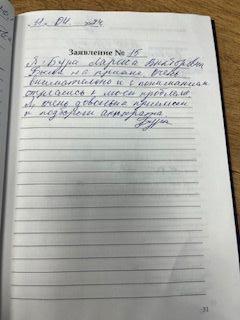 11. 04. 24
Заявление № 15
Я, Бура Лариса Викторовна
Была на приеме, очень
внимательно и с пониманием
отнеслись к моей проблеме.
Я очень довольна приемом
и подбором аппарата
Бура
31